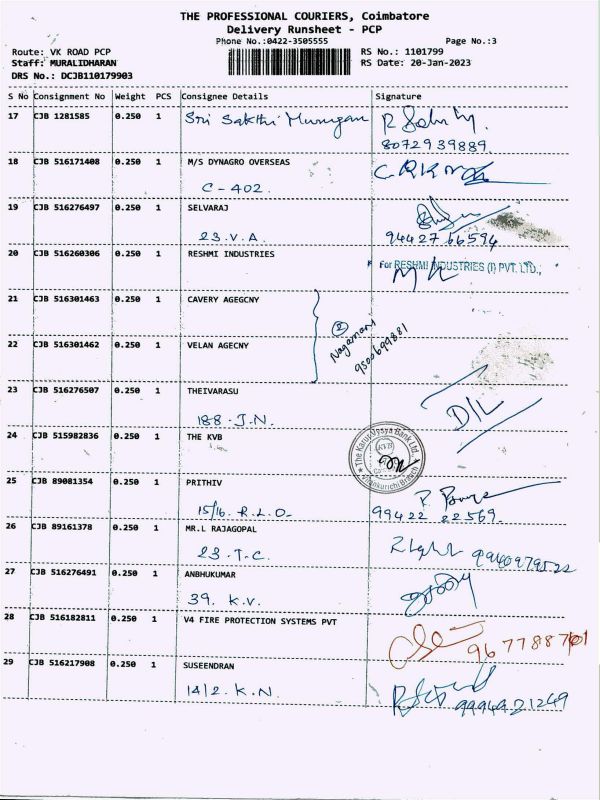 THE PROFESSIONAL COURIERS, Coimbatore
Delivery Runsheet - PCP
Phone No.:0422-3505555
Page No.:3
Route: VK ROAD PCP
RS No.: 1101799
Staff: MURALIDHARAN
RS Date: 20-Jan-2023
DRS No.: DCJB110179903
S No Consignment No Weight PCS Consignee Details Signature
17 CJB 1281585 0.250 1 Sri Sakthi Murugan
8072939889
18 CJB 516171408 0.250 1 M/S DYNAGRO OVERSEAS
C-402.
19 CJB 516276497 0.250 1 SELVARAJ
23.V.A. 9442766594
20 CJB 516260306 0.250 1 RESHMI INDUSTRIES
For RESHMI INDUSTRIES (I) PVT. LTD.,
21 CJB 516301463 0.250 1 CAVERY AGEGCNY
2
Nagamani
9500699881
22 CJB 516301462 0.250 1 VELAN AGECNY
23 CJB 516276507 0.250 1 THEIVARASU
188.J.N. D/L
24 CJB 515982836 0.250 1 THE KVB
The Karur Vysya Bank Ltd.
KVB
Branch
25 CJB 89081354 0.250 1 PRITHIV
15/16. R.L.O. 99422 22569.
26 CJB 89161378 0.250 1 MR.L RAJAGOPAL
23.T.C. 9940979522
27 CJB 516276491 0.250 1 ANBHUKUMAR
39. K.V.
28 CJB 516182811 0.250 1 V4 FIRE PROTECTION SYSTEMS PVT
29 CJB 516217908 0.250 1 SUSEENDRAN
14/2. K.N. 9994921249